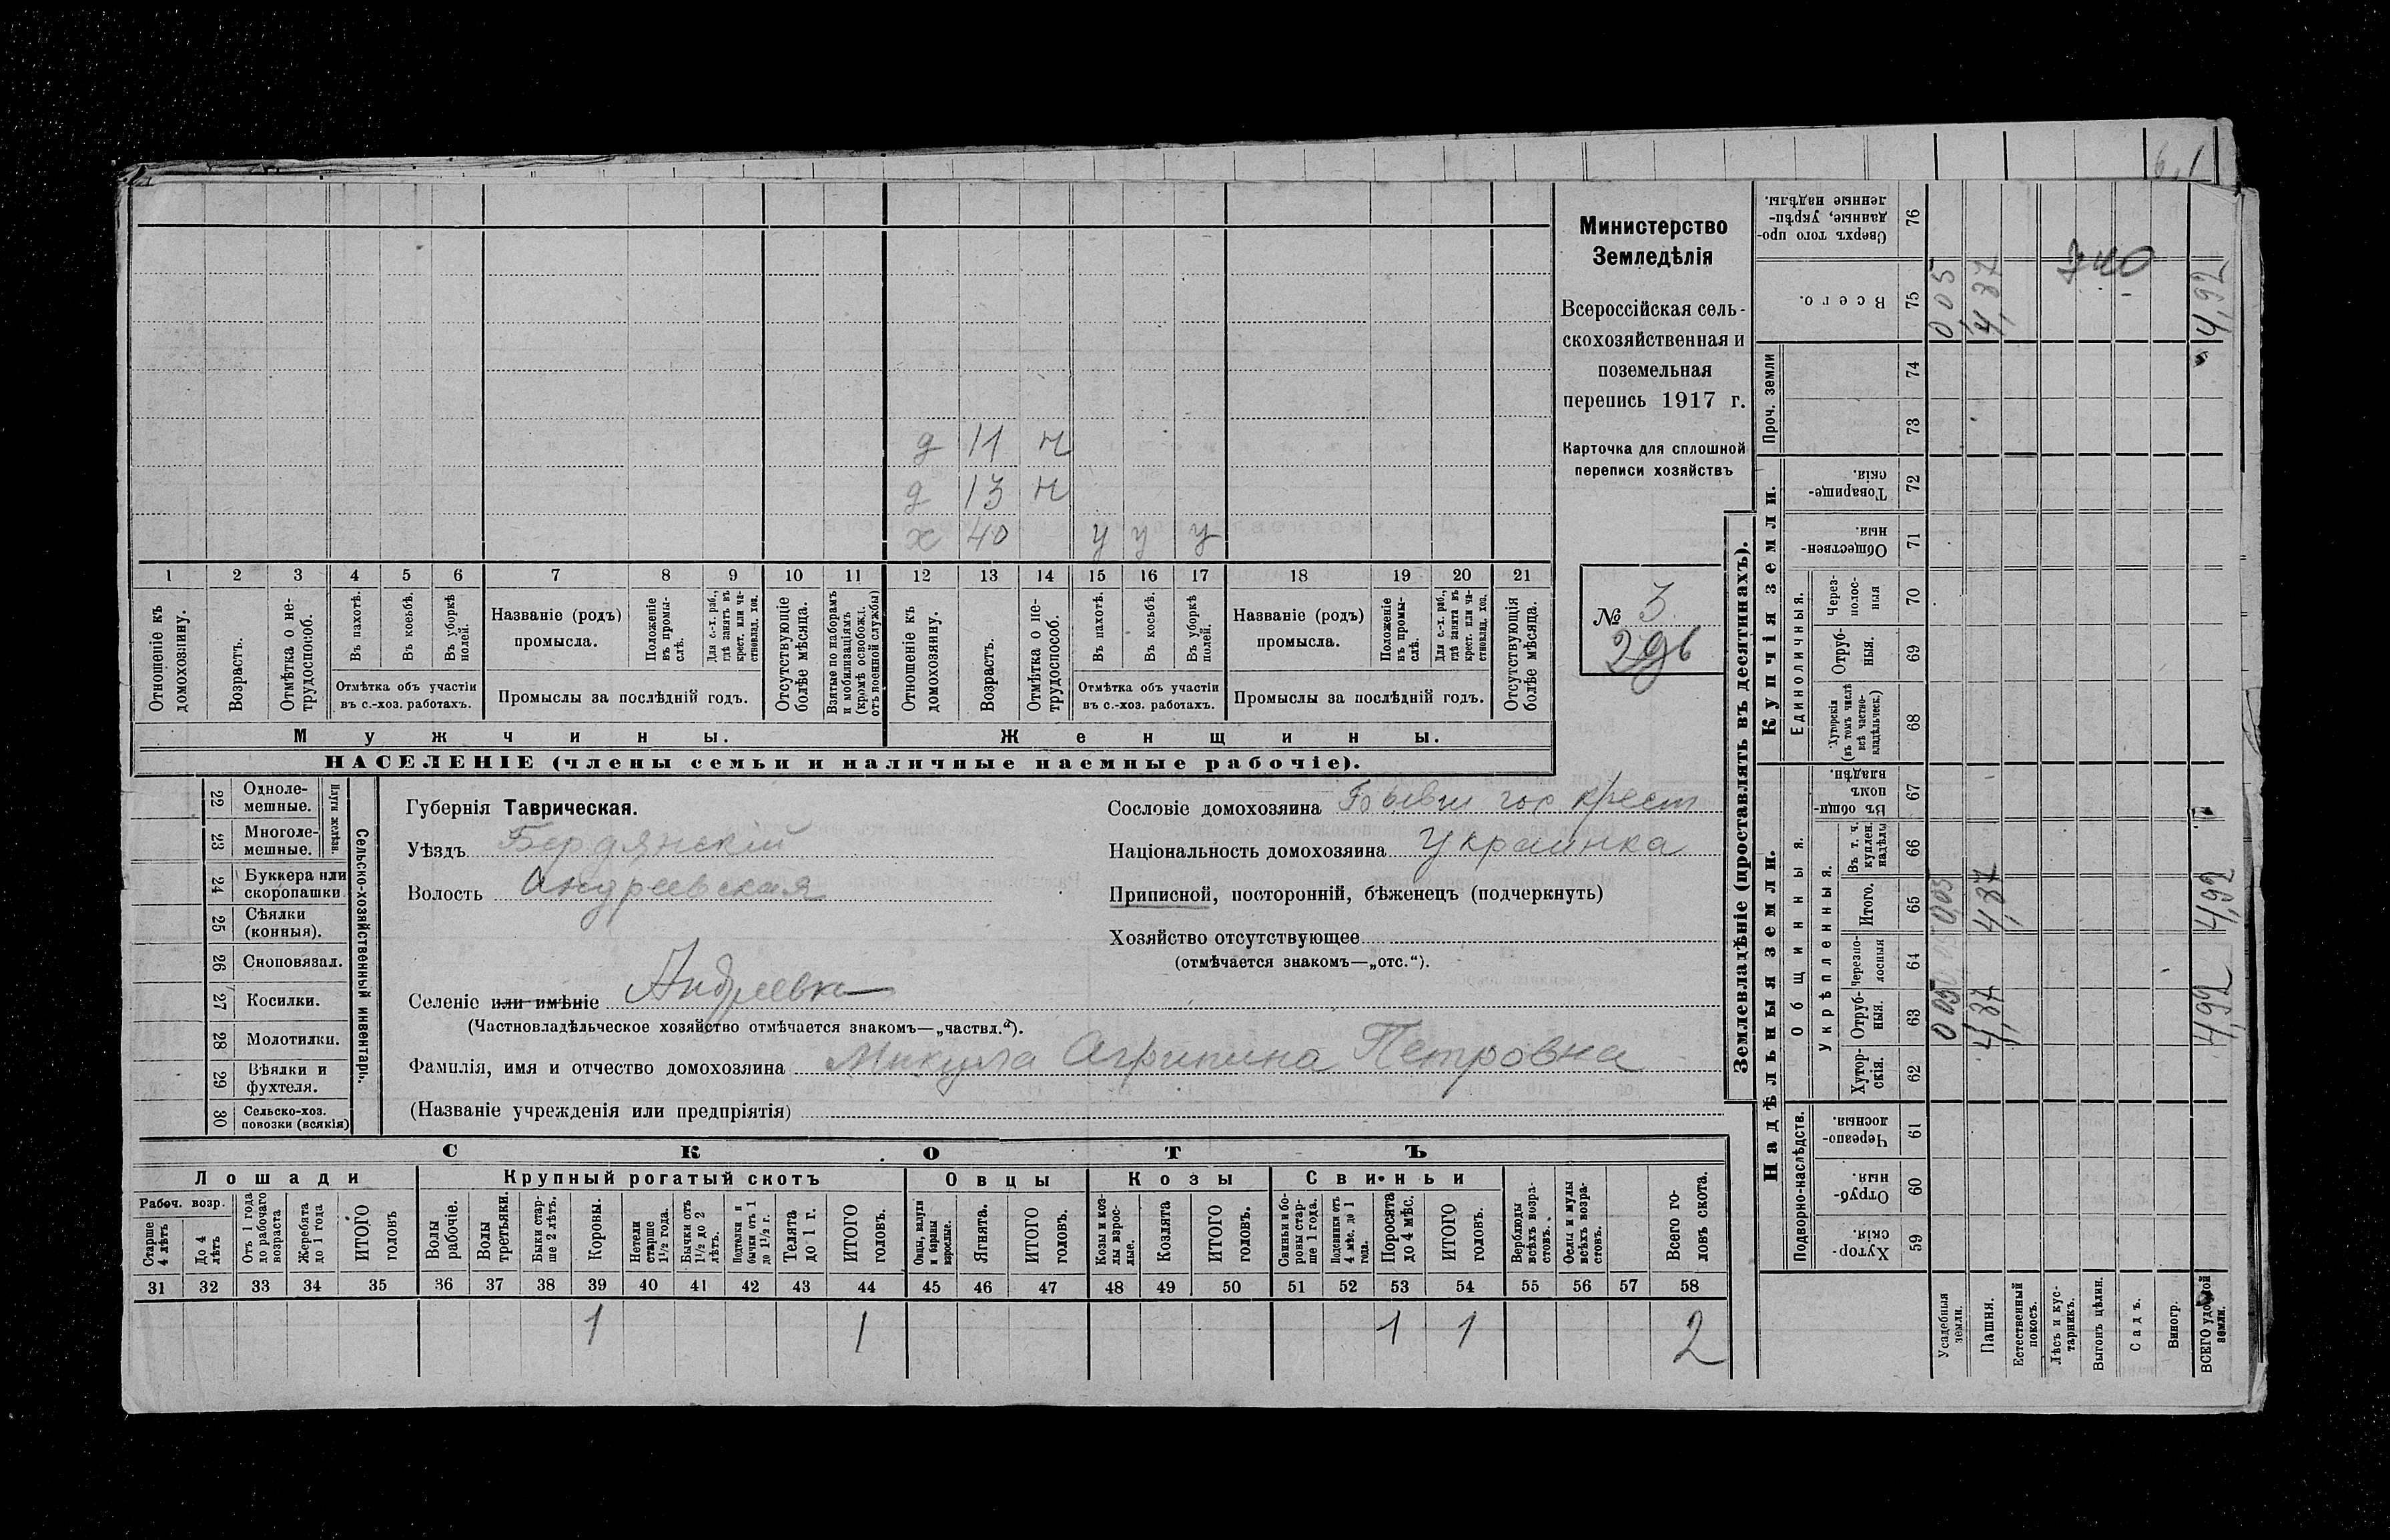 6,1
д 11 н
д 13 н
х 40 у у у
1 2 3 4 5 6 7 8 9 10 11 12 13 14 15 16 17 18 19 20 21
Отношеніе къ домохозяину.
Возрастъ.
Отмѣтка о не-трудоспособ.
Въ пахотѣ.
Въ косьбѣ.
Въ уборкѣ полей.
Отмѣтка объ участіи
въ с.-хоз. работахъ.
Названіе (родъ)
промысла.
Положеніе въ промы-слѣ.
Для с.-х. раб., гдѣ занятъ въ крест. или ча-стновлад. хоз.
Промыслы за послѣдній годъ.
Отсутствующіе болѣе мѣсяца.
Взятые по наборамъ и мобилизаціямъ (кромѣ освобожд. отъ военной службы)
Отношеніе къ домохозяину.
Возрастъ.
Отмѣтка о не-трудоспособ.
Въ пахотѣ.
Въ косьбѣ.
Въ уборкѣ полей.
Отмѣтка объ участіи
въ с.-хоз. работахъ.
Названіе (родъ)
промысла.
Положеніе въ промы-слѣ.
Для с.-х. раб., гдѣ занята въ крест. или ча-стновлад. хоз.
Промыслы за послѣдній годъ.
Отсутствующія болѣе мѣсяца.
Мужчины.
Женщины.
НАСЕЛЕНІЕ (члены семьи и наличные наемные рабочіе).
Министерство
Земледѣлія
Всероссійская сель-
скохозяйственная и
поземельная
перепись 1917 г.
Карточка для сплошной
переписи хозяйствъ
№ 3
296
22 Одноле-мешные.
23 Многоле-мешные.
Плуги желѣзн.
24 Буккера или скоропашки
25 Сѣялки (конныя).
26 Сноповязал.
27 Косилки.
28 Молотилки.
29 Вѣялки и фухтеля.
30 Сельско-хоз. повозки (всякія)
Сельско-хозяйственный инвентарь.
Губернія Таврическая.
Уѣздъ Бердянскій
Волость Андреевская
Селеніе или имѣніе Андреевка
(Частновладѣльческое хозяйство отмѣчается знакомъ—„частвл.“).
Фамилія, имя и отчество домохозяина Микула Агрипина Петровна
(Названіе учрежденія или предпріятія)
Сословіе домохозяина Бывш гос крест
Національность домохозяина Украинка
Приписной, посторонній, бѣженецъ (подчеркнуть)
Хозяйство отсутствующее
(отмѣчается знакомъ—„отс.“).
СКОТЪ
Лошади
Крупный рогатый скотъ
Овцы
Козы
Свиньи
Рабоч. возр.
Старше 4 лѣтъ
До 4 лѣтъ
Отъ 1 года до рабочаго возраста
Жеребята до 1 года
ИТОГО головъ
Волы рабочіе.
Волы третьяки.
Быки стар-ше 2 лѣтъ.
Коровы.
Нетели старше 1½ года.
Бычки отъ 1½ до 2 лѣтъ.
Подтелки и бычки отъ 1 до 1½ г.
Телята до 1 г.
ИТОГО головъ.
Овцы, валухи и бараны взрослые.
Ягнята.
ИТОГО головъ.
Козы и коз-лы взрос-лые.
Козлята
ИТОГО головъ.
Свиньи и бо-ровы стар-ше 1 года.
Подсвинки отъ 4 мѣс. до 1 года.
Поросята до 4 мѣс.
ИТОГО головъ.
Верблюды всѣхъ возра-стовъ.
Ослы и мулы всѣхъ возра-стовъ.
Всего го-ловъ скота.
31 32 33 34 35 36 37 38 39 40 41 42 43 44 45 46 47 48 49 50 51 52 53 54 55 56 57 58
1 1 1 1 2
Землевладѣніе (проставлять въ десятинахъ).
Надѣльныя земли.
Купчія земли.
Проч. земли
Общинныя.
Укрѣпленныя.
Подворно-наслѣдств.
Единоличныя.
Сверхъ того про-данные, укрѣп-ленные надѣлы. 76
Всего. 75 0,05 4,87 4,92
740
74
73
Товарище-скія. 72
Обществен-ныя. 71
Через-полос-ныя 70
Отруб-ныя. 69
Хуторскія (въ томъ числѣ всѣ частно-владѣльческ.) 68
Въ общин-номъ владѣн. 67
Въ т. ч. куплен. надѣлы 66
Итого. 65 0,05 4,87 4,92
Черезпо-лосныя 64
Отруб-ныя. 63 0,05 4,87 4,92
Хутор-скія. 62
Черезпо-лосныя. 61
Отруб-ныя. 60
Хутор-скія. 59
Усадебныя земли.
Пашня.
Естественный покосъ.
Лѣсъ и кус-тарникъ.
Выгонъ цѣлин.
Садъ.
Виногр.
ВСЕГО удобной земли.